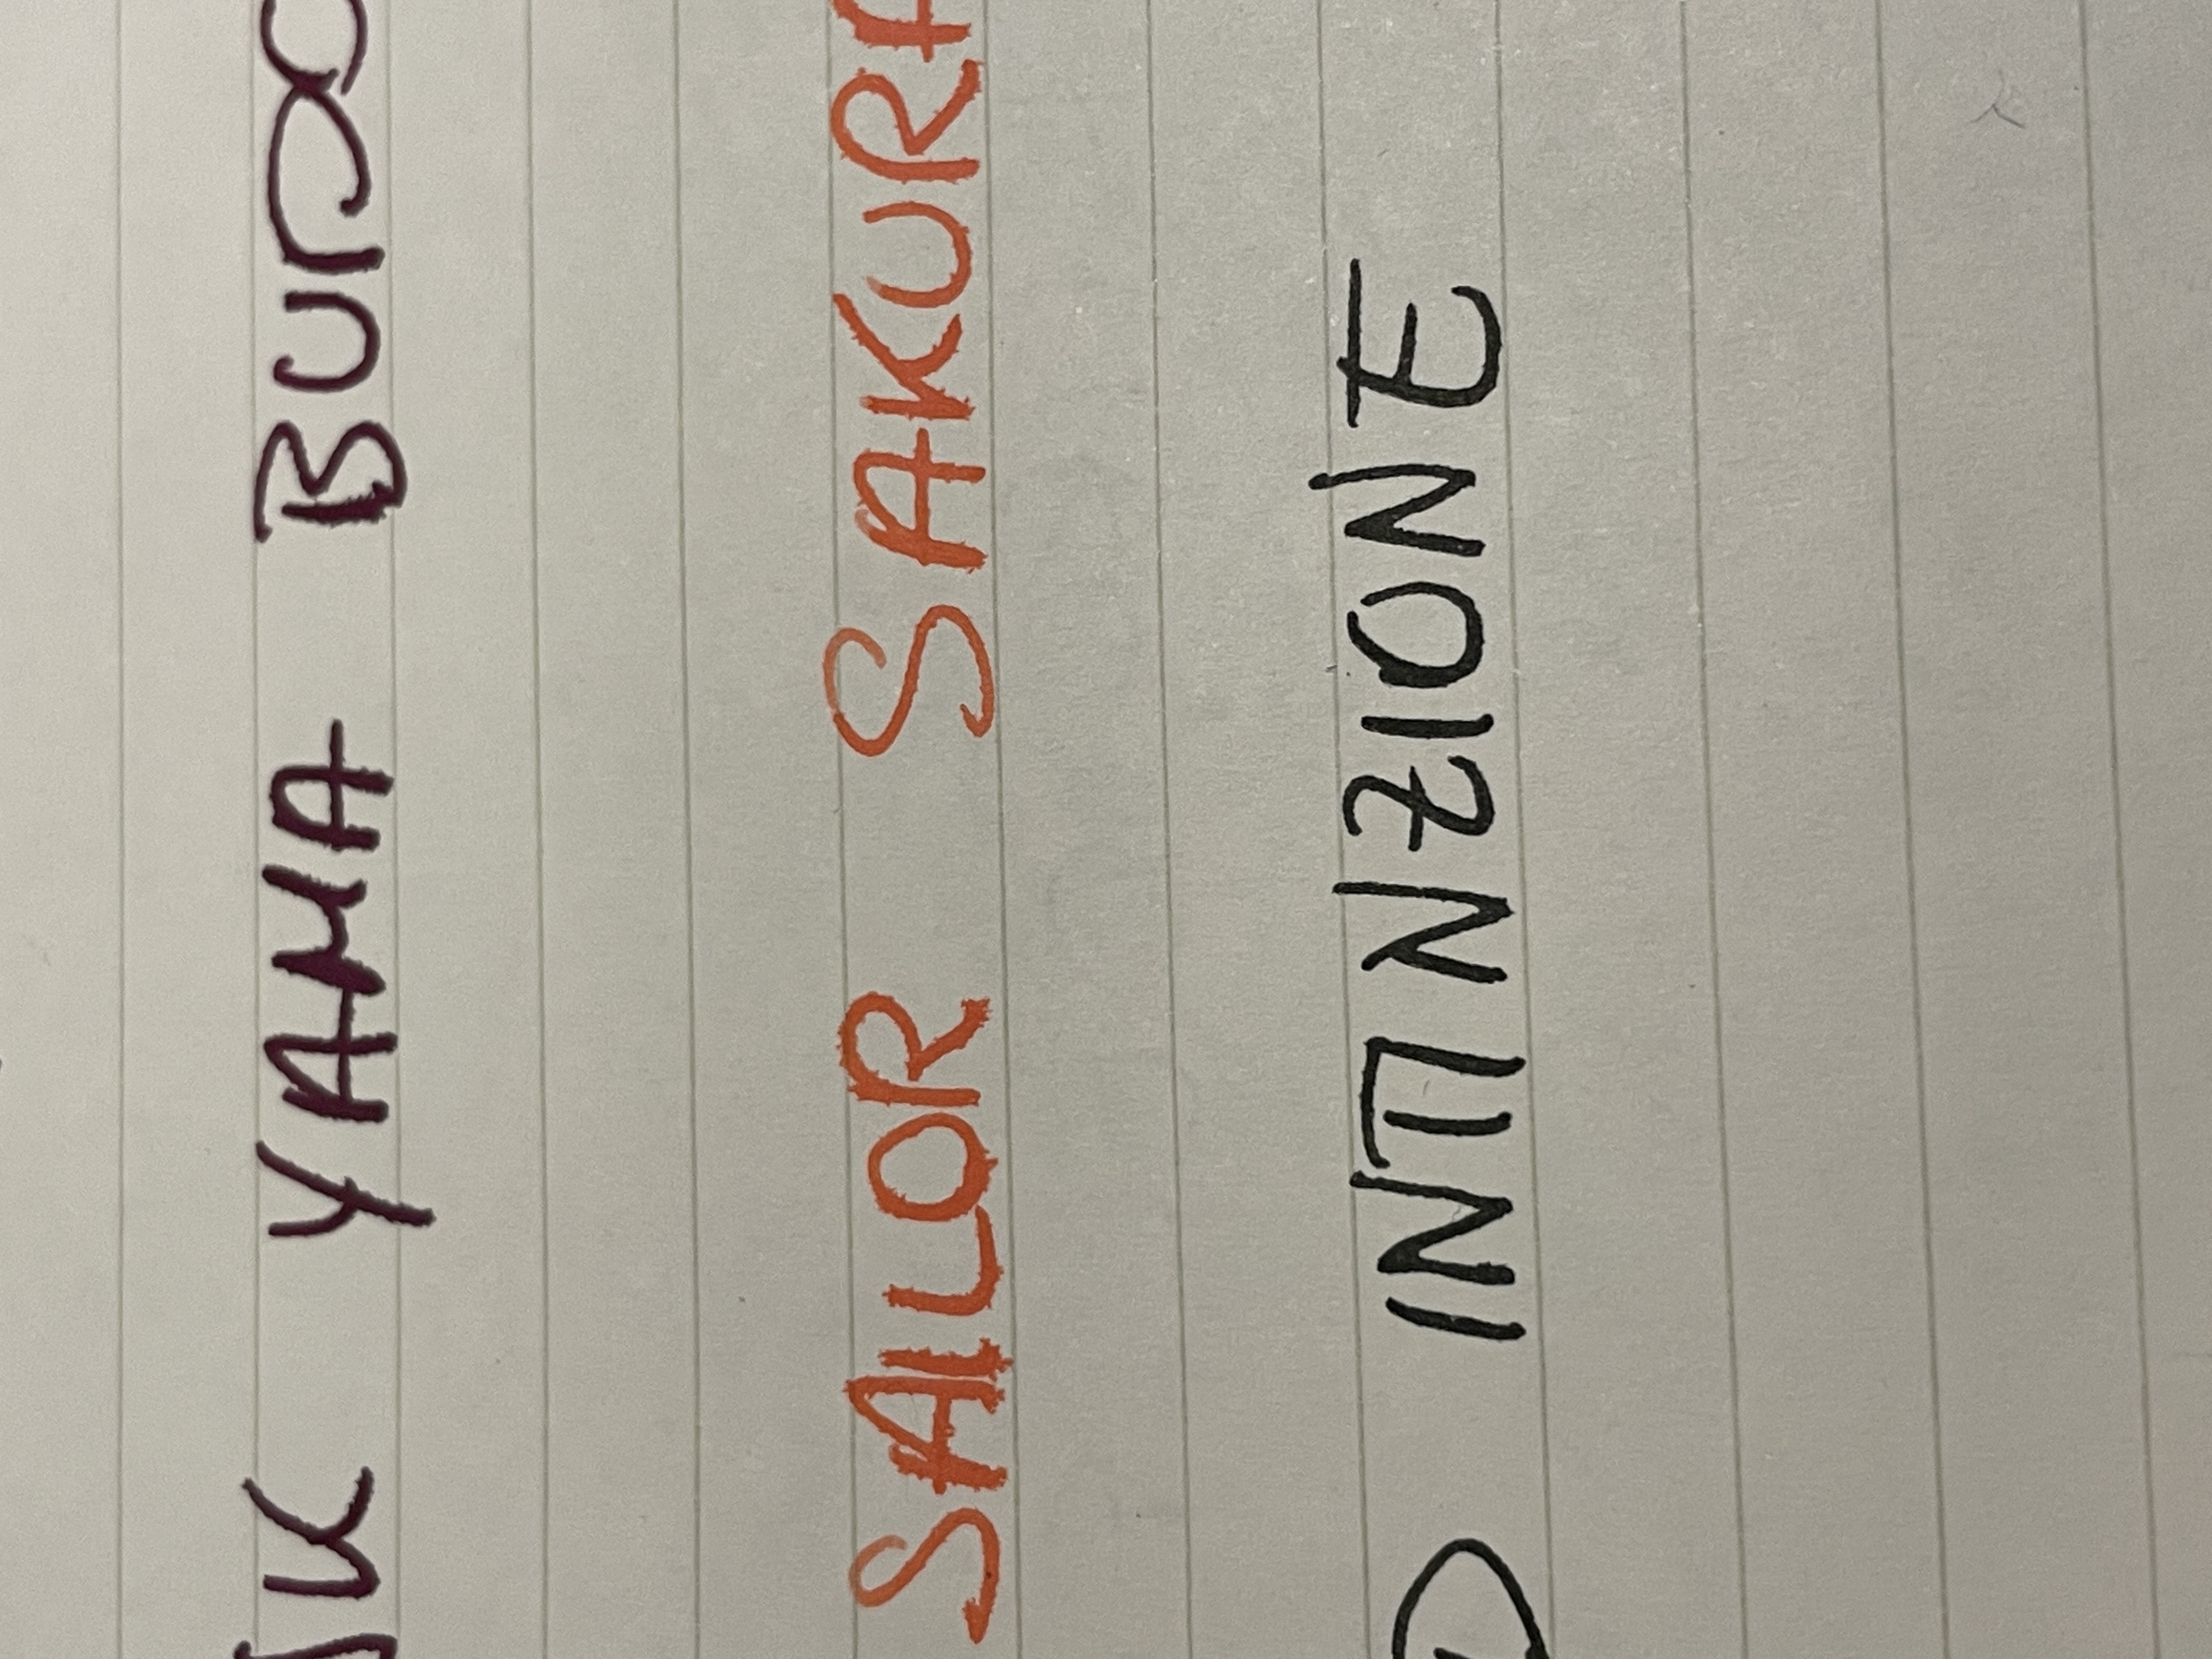 YAMA BUDO
SAILOR SAKURA
INTINZIONE